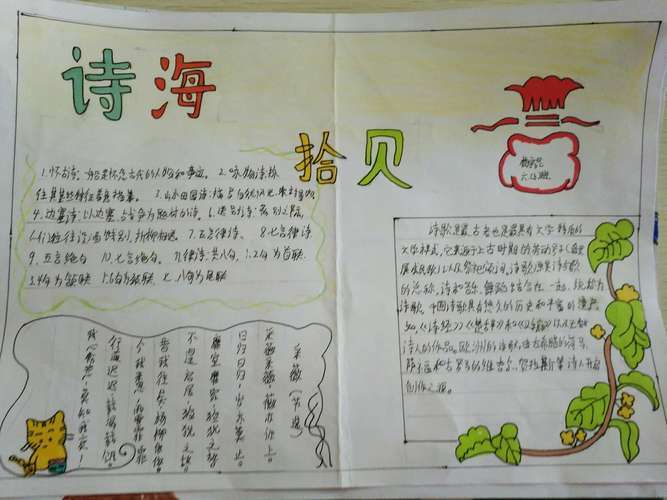 诗海
拾贝
六
班
1.怀古诗:一般是怀念古代的人物和事迹。2.咏物诗:抓
住其某些特征着意描摹。3.山水田园诗:描写自然风光
4.边塞诗:以边塞、战争为题材的诗。5.送别诗:离别之际,
人们往往设酒饯别,折柳相送。7.五言律诗。8.七言律诗
9.五言绝句。10.七言绝句。律诗:共八句。1、2句为首联
3、4句为颔联 5、6句为颈联 七、八句为尾联
诗歌是最古老也是最具有文学特质的
文学样式。它来源于上古时期的劳动号子(后发
展成民歌)以及祭祀颂词。诗歌原是诗与歌
的总称,诗和音乐、舞蹈结合在一起,统称为
诗歌。中国诗歌具有悠久的历史和丰富的遗产,
如《诗经》《楚辞》和《汉乐府》以及无数
诗人的作品。欧洲的诗歌,由古希腊的荷马、
萨福和古罗马的维吉尔、贺拉斯等诗人开启
创作之源。
采薇(节选)
采薇采薇,薇亦作止。
曰归曰归,岁亦莫止。
靡室靡家,猃狁之故。
不遑启居,猃狁之故。
昔我往矣,杨柳依依。
今我来思,雨雪霏霏。
行道迟迟,载渴载饥。
我心伤悲,莫知我哀!